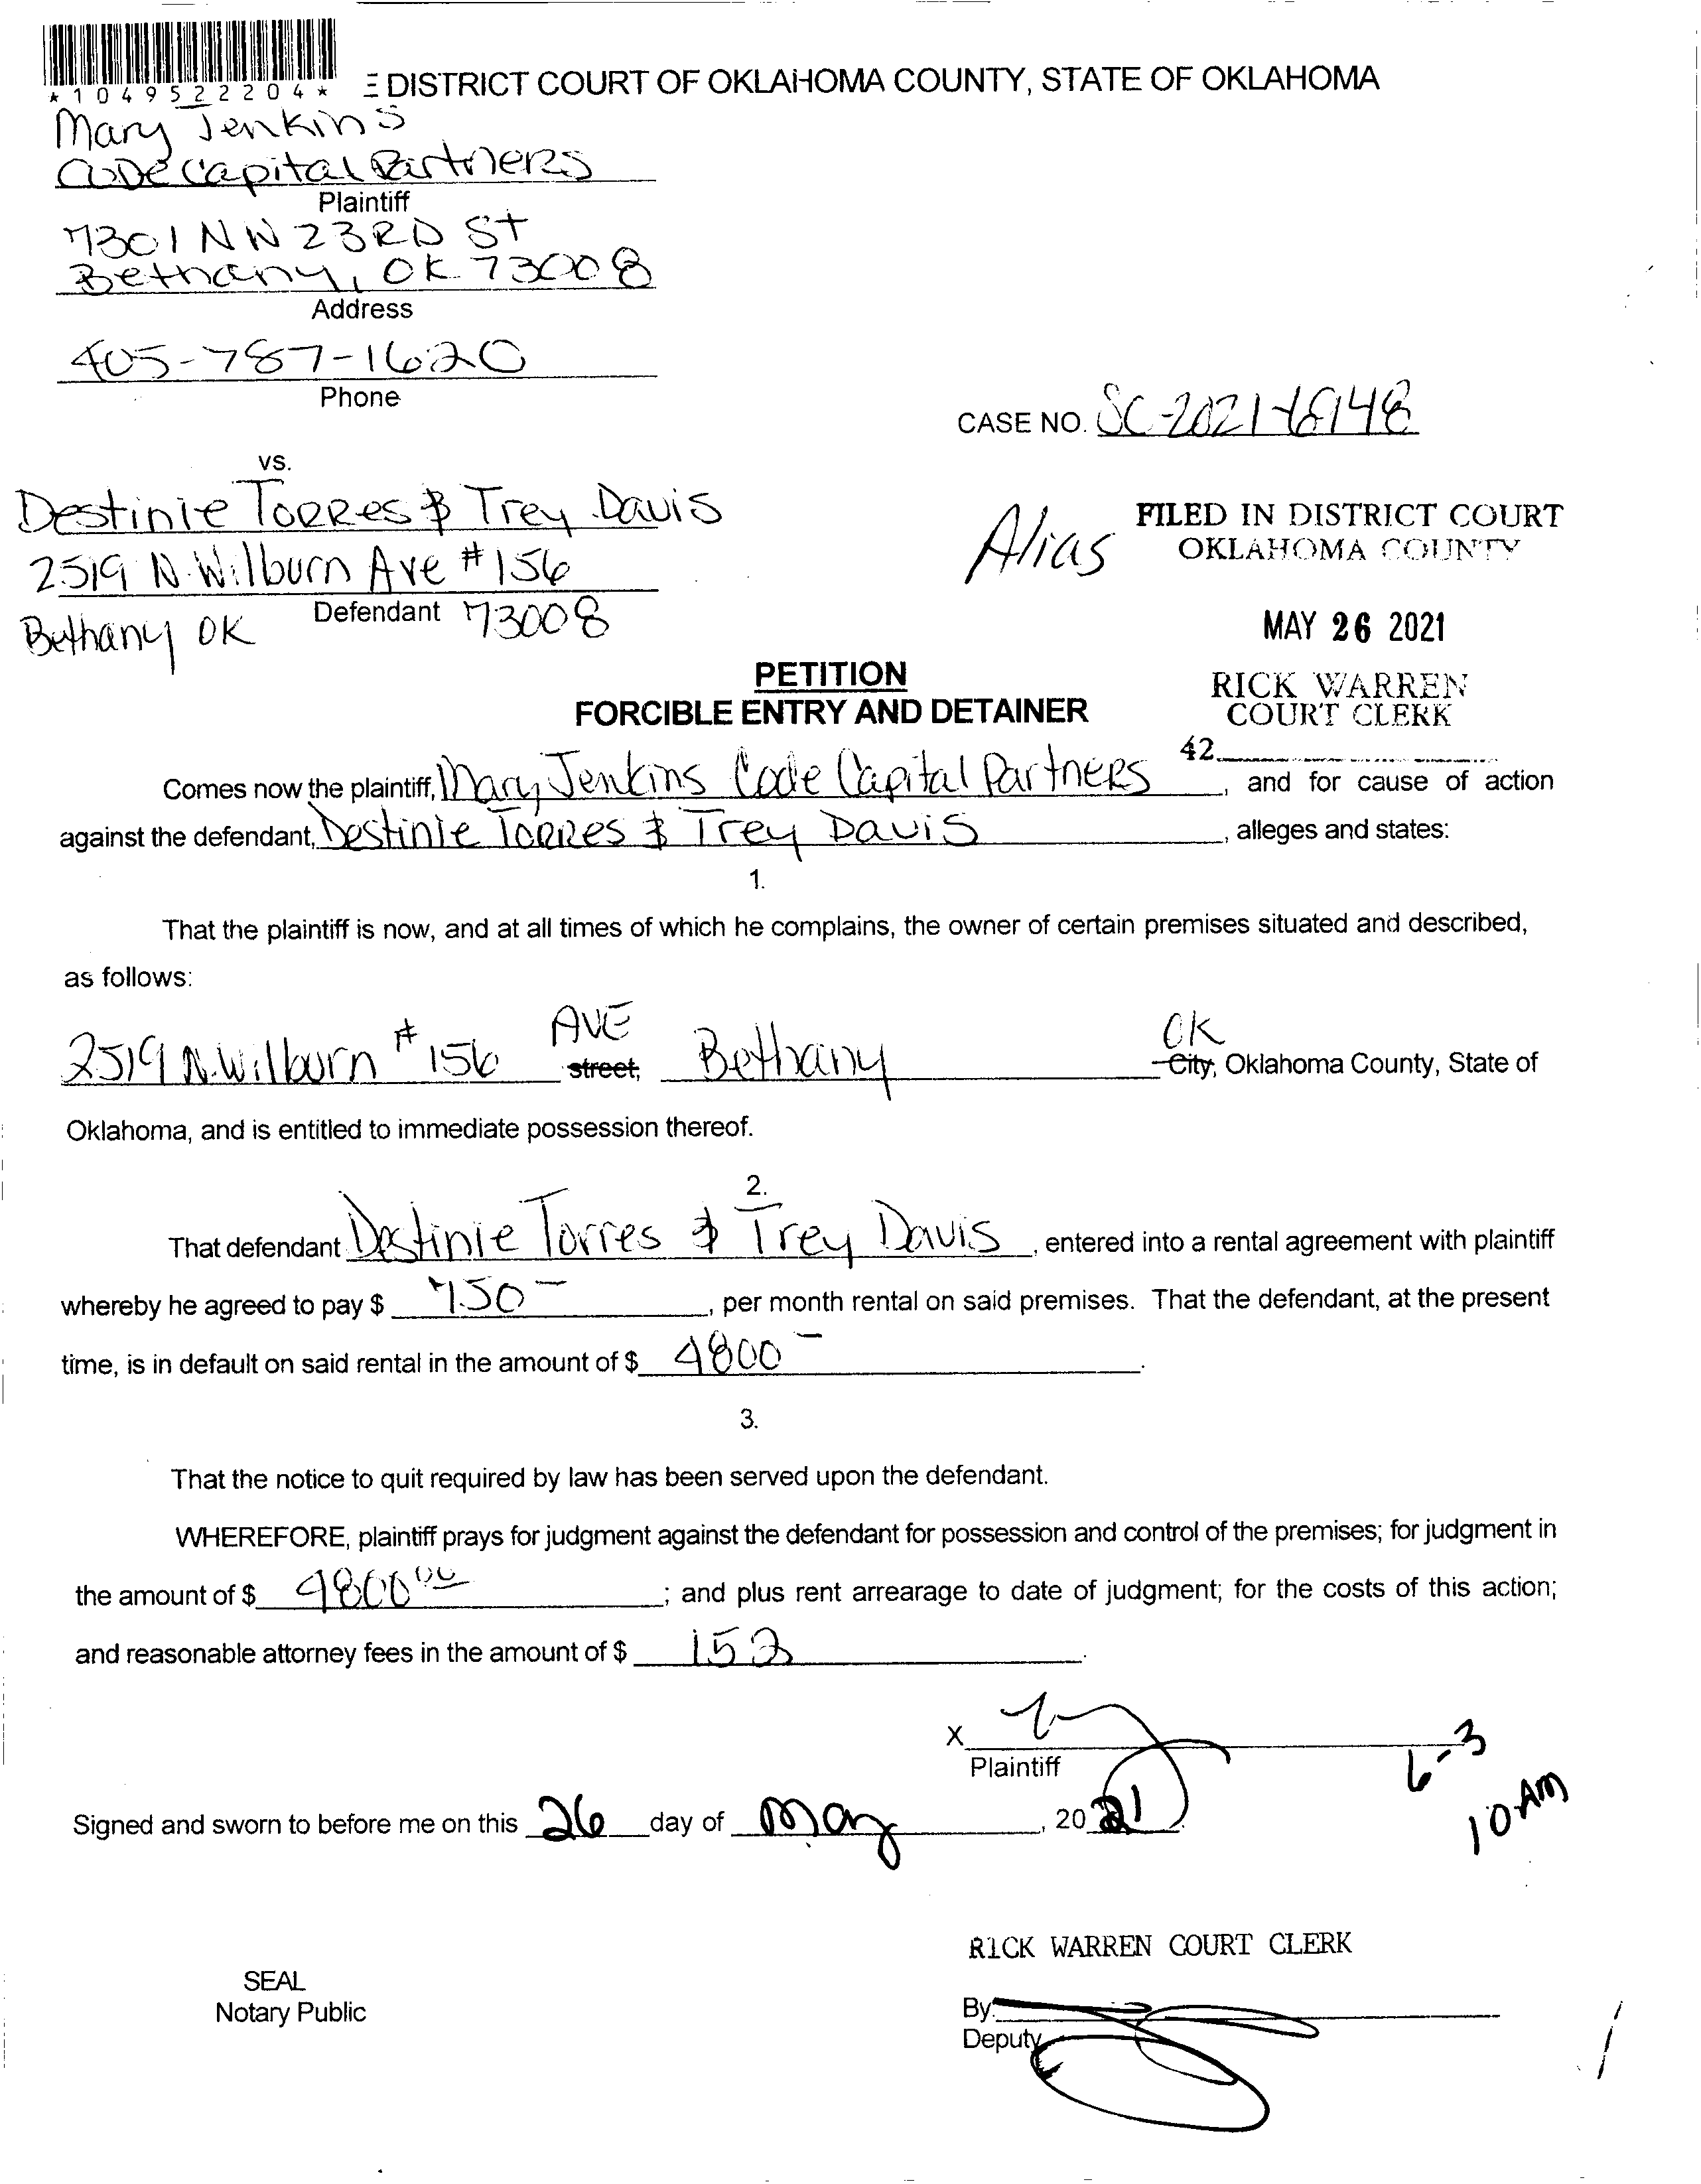 *1049522204*
DISTRICT COURT OF OKLAHOMA COUNTY, STATE OF OKLAHOMA
Mary Jenkins
CODE Capital Partners
Plaintiff
7301 NW 23RD St
Bethany, OK 73008
Address
405-787-1620
Phone
CASE NO. SC-2021-
vs.
Destinie Torres & Trey Davis
2519 N. Wilburn Ave #156
Defendant
Bethany OK 73008
Alias
FILED IN DISTRICT COURT
OKLAHOMA COUNTY
MAY 26 2021
RICK WARREN
COURT CLERK
42
PETITION
FORCIBLE ENTRY AND DETAINER
Comes now the plaintiff, Mary Jenkins Code Capital Partners, and for cause of action
against the defendant, Destinie Torres & Trey Davis, alleges and states:
1.
That the plaintiff is now, and at all times of which he complains, the owner of certain premises situated and described,
as follows:
2519 N. Wilburn #156 AVE street, Bethany OK City, Oklahoma County, State of
Oklahoma, and is entitled to immediate possession thereof.
2.
That defendant Destinie Torres & Trey Davis, entered into a rental agreement with plaintiff
whereby he agreed to pay $ 750-, per month rental on said premises. That the defendant, at the present
time, is in default on said rental in the amount of $ 4800-.
3.
That the notice to quit required by law has been served upon the defendant.
WHEREFORE, plaintiff prays for judgment against the defendant for possession and control of the premises; for judgment in
the amount of $ 4800 00; and plus rent arrearage to date of judgment; for the costs of this action;
and reasonable attorney fees in the amount of $ 152.
X
Plaintiff
6-3
10 AM
Signed and sworn to before me on this 26 day of May, 2021.
RICK WARREN COURT CLERK
SEAL
Notary Public
By:
Deputy